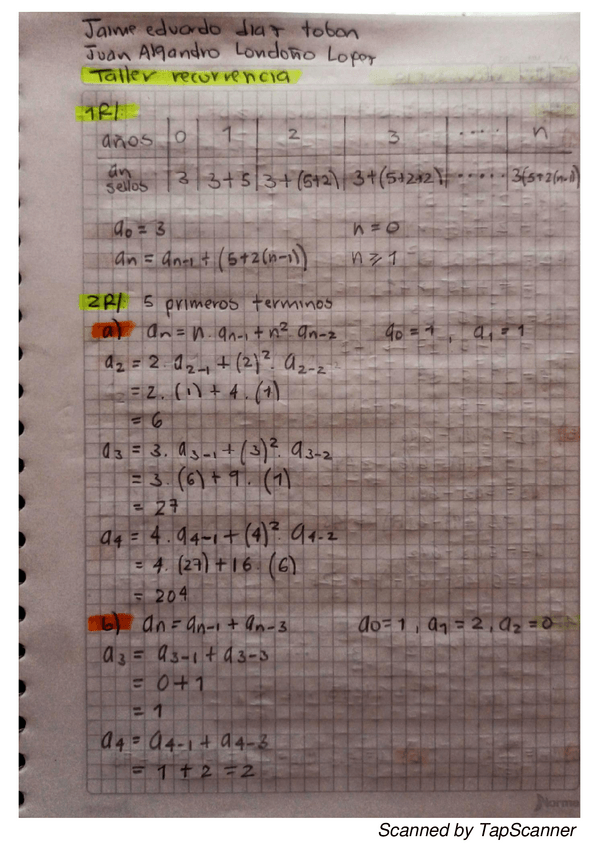 Jaime eduardo diaz tobon
Juan Alejandro Londoño Lopez
Taller recurrencia
1R/.
años 0 1 2 3 ..... n
an sellos 3 3+5 3+(5+2) 3+(5+2+2) ..... 3(5+2(n-1)
a₀ = 3 n = 0
an = an-1 + (5+2(n-1)) n ≥ 1
2R/. 5 primeros terminos
a) an = n. an-1 + n² an-2 a₀ = 1 , a₁ = 1
a₂ = 2. a₂₋₁ + (2)². a₂₋₂
= 2. (1) + 4. (1)
= 6
a₃ = 3. a₃₋₁ + (3)². a₃₋₂
= 3. (6) + 9. (1)
= 27
a₄ = 4. a₄₋₁ + (4)². a₄₋₂
= 4. (27) + 16. (6)
= 204
b) an = an-1 + an-3 a₀ = 1 , a₁ = 2 , a₂ = 0
a₃ = a₃₋₁ + a₃₋₃
= 0 + 1
= 1
a₄ = a₄₋₁ + a₄₋₃
= 1 + 2 = 2
Norma
Scanned by TapScanner